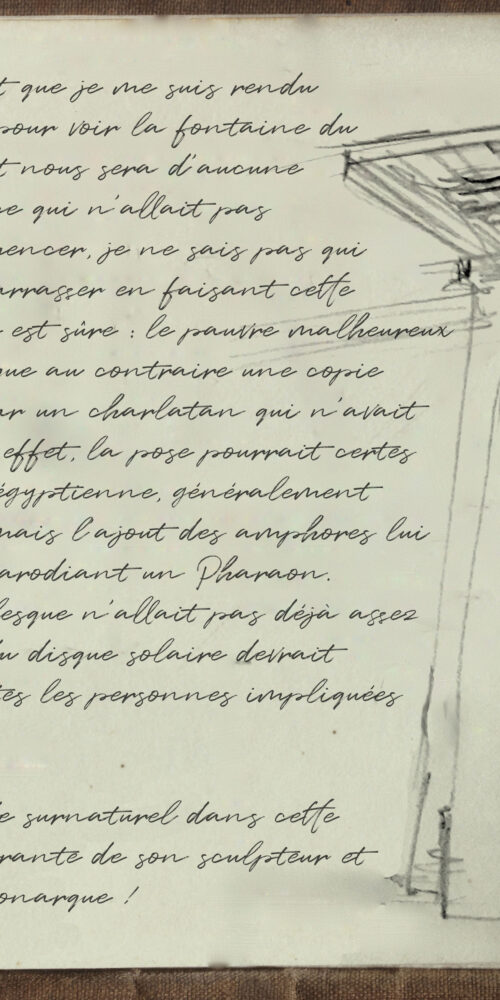 t que je me suis rendu
pour voir la fontaine du
t nous sera d'aucune
e qui n'allait pas
encer, je ne sais pas qui
arrasser en faisant cette
est sûre : le pauvre malheureux
que au contraire une copie
ar un charlatan qui n'avait
effet, la pose pourrait certes
égyptienne, généralement
mais l'ajout des amphores lui
arodiant un Pharaon.
esque n'allait pas déjà assez
u disque solaire devrait
tes les personnes impliquées
e surnaturel dans cette
rante de son sculpteur et
onarque !